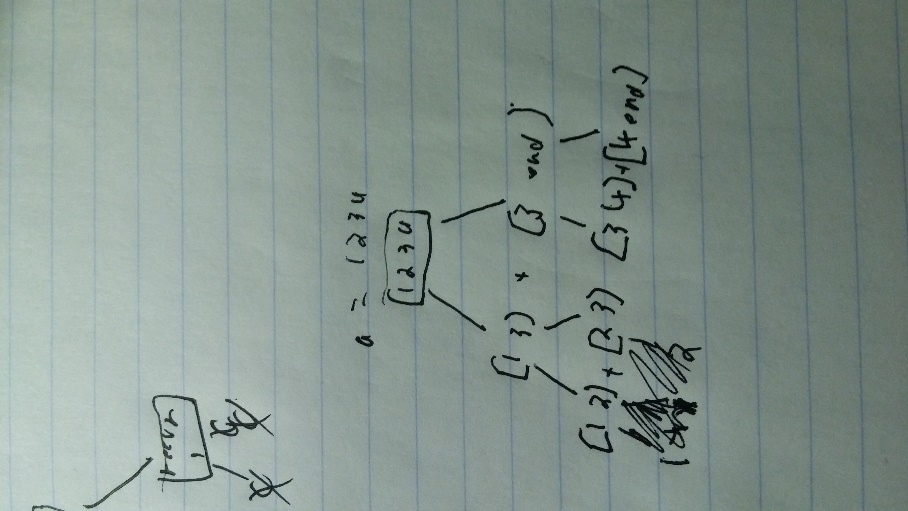 a = 1234
1234
[1 3) + [3 end)
[1 2) + [2 3) [3 4) + [4 end)
1
2